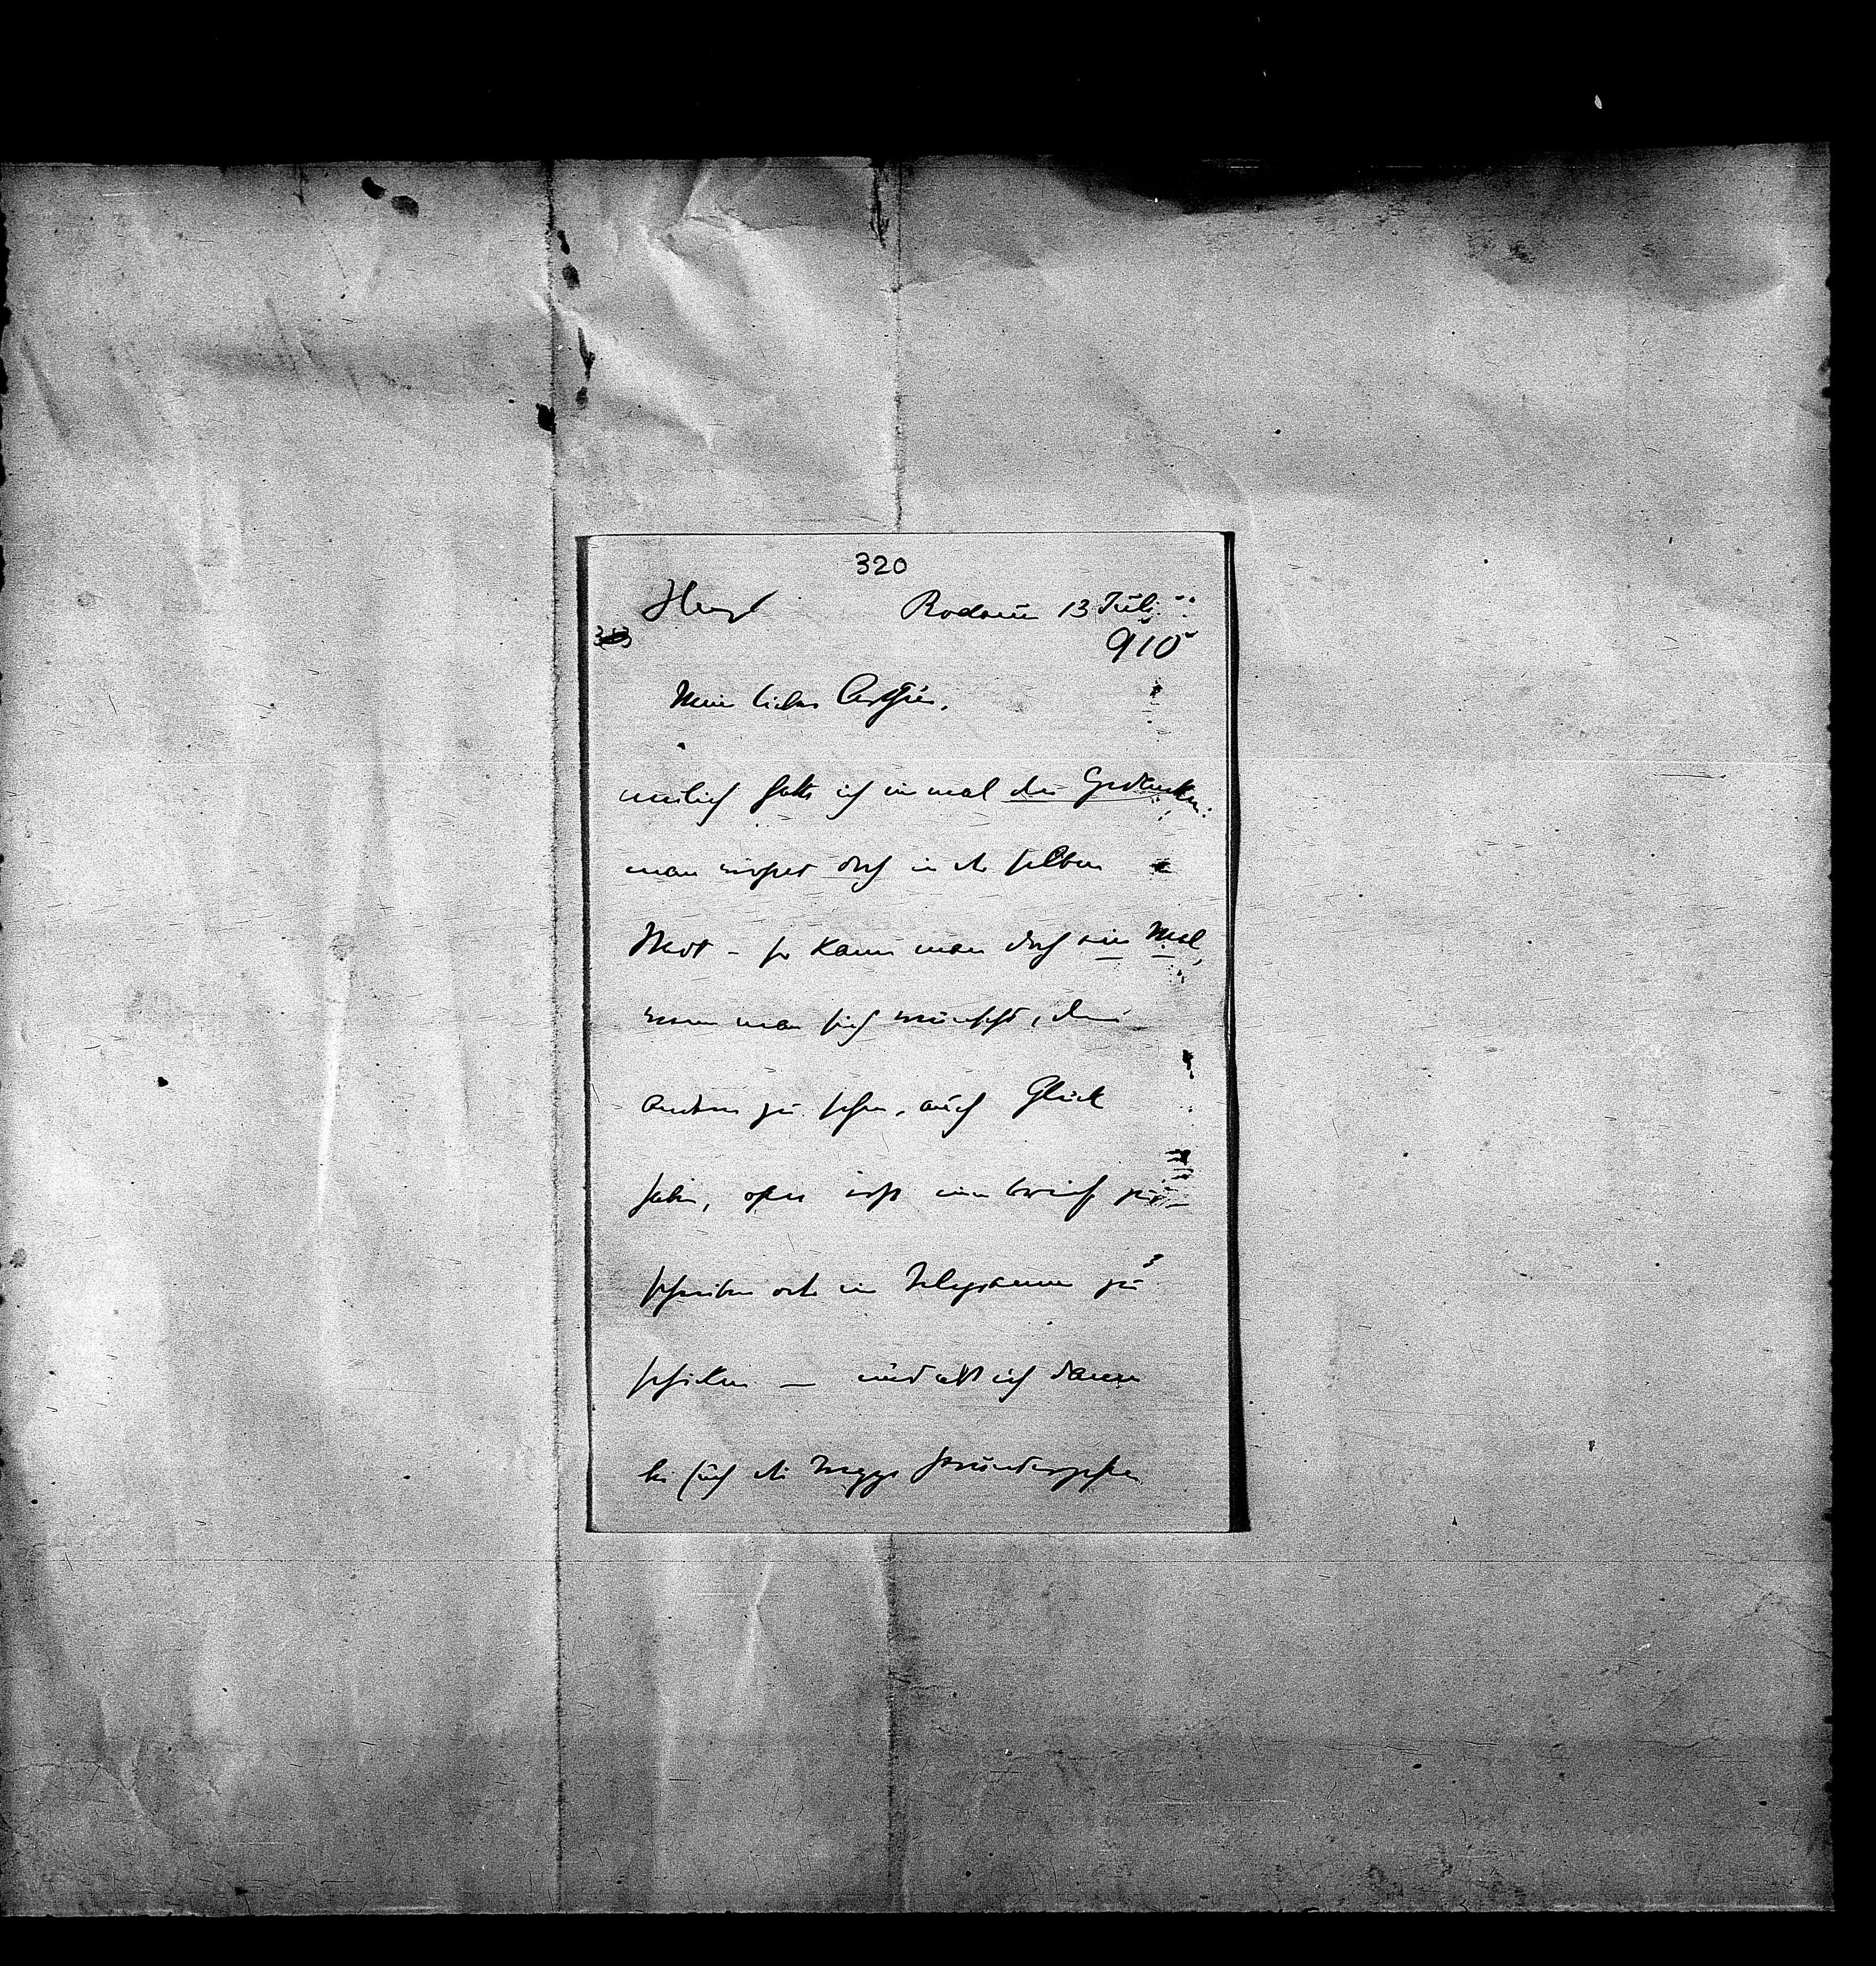 320
Hugo Rodaun 13 Juli
910
Mein lieber Arthur,
neulich hatte ich einmal den Gedanken:
man wohnt doch in der selben
Stadt – so kann man doch ein Mal,
wenn man sich wünscht, den
andern zu sehen, auch Glück
haben, ohne erst einen Brief zu
schreiben oder ein Telegramm zu
schicken – und als ich dann
bei Euch die Treppe hinunterging